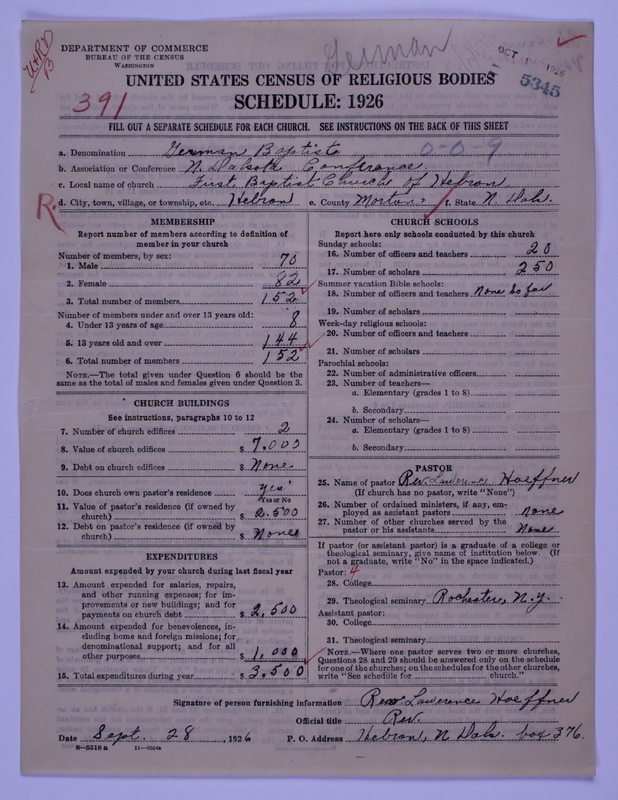 German
OCT 1 1926
5345
DEPARTMENT OF COMMERCE
BUREAU OF THE CENSUS
WASHINGTON
UNITED STATES CENSUS OF RELIGIOUS BODIES
391
SCHEDULE: 1926
FILL OUT A SEPARATE SCHEDULE FOR EACH CHURCH. SEE INSTRUCTIONS ON THE BACK OF THIS SHEET
a. Denomination German Baptist 0-0-9
b. Association or Conference N. Dakota Conference
c. Local name of church First Baptist Church of Hebron
R d. City, town, village, or township, etc. Hebron e. County Morton f. State N. Dak.
MEMBERSHIP
Report number of members according to definition of
member in your church
Number of members, by sex:
1. Male 70
2. Female 82
3. Total number of members 152
Number of members under and over 13 years old:
4. Under 13 years of age 8
5. 13 years old and over 144
6. Total number of members 152
NOTE.—The total given under Question 6 should be
same as the total of males and females given under Question 3.
CHURCH BUILDINGS
See instructions, paragraphs 10 to 12
7. Number of church edifices 2
8. Value of church edifices $ 7.000
9. Debt on church edifices $ None
10. Does church own pastor's residence yes
Yes or No
11. Value of pastor's residence (if owned by
church) $ 2.500
12. Debt on pastor's residence (if owned by
church) $ None
EXPENDITURES
Amount expended by your church during last fiscal year
13. Amount expended for salaries, repairs,
and other running expenses; for im-
provements or new buildings; and for
payments on church debt $ 2,500
14. Amount expended for benevolences, in-
cluding home and foreign missions; for
denominational support; and for all
other purposes $ 1,000
15. Total expenditures during year $ 3,500
CHURCH SCHOOLS
Report here only schools conducted by this church
Sunday schools:
16. Number of officers and teachers 20
17. Number of scholars 250
Summer vacation Bible schools:
18. Number of officers and teachers None so far
19. Number of scholars
Week-day religious schools:
20. Number of officers and teachers
21. Number of scholars
Parochial schools:
22. Number of administrative officers
23. Number of teachers—
a. Elementary (grades 1 to 8)
b. Secondary
24. Number of scholars—
a. Elementary (grades 1 to 8)
b. Secondary
PASTOR
25. Name of pastor Rev. Lawerence Hoeffner
(If church has no pastor, write "None")
26. Number of ordained ministers, if any, em-
ployed as assistant pastors none
27. Number of other churches served by the
pastor or his assistants None
If pastor (or assistant pastor) is a graduate of a college or
theological seminary, give name of institution below. (If
not a graduate, write "No" in the space indicated.)
Pastor: 4
28. College
29. Theological seminary Rochester, N.Y.
Assistant pastor:
30. College
31. Theological seminary
NOTE.—Where one pastor serves two or more churches,
Questions 28 and 29 should be answered only on the schedule
for one of the churches; on the schedules for the other churches,
write "See schedule for church."
Signature of person furnishing information Rev. Lawerence Hoeffner
Official title Rev.
Date Sept. 28, 1926 P. O. Address Hebron, N Dak. box 376.
8—5518 a 11—9024a